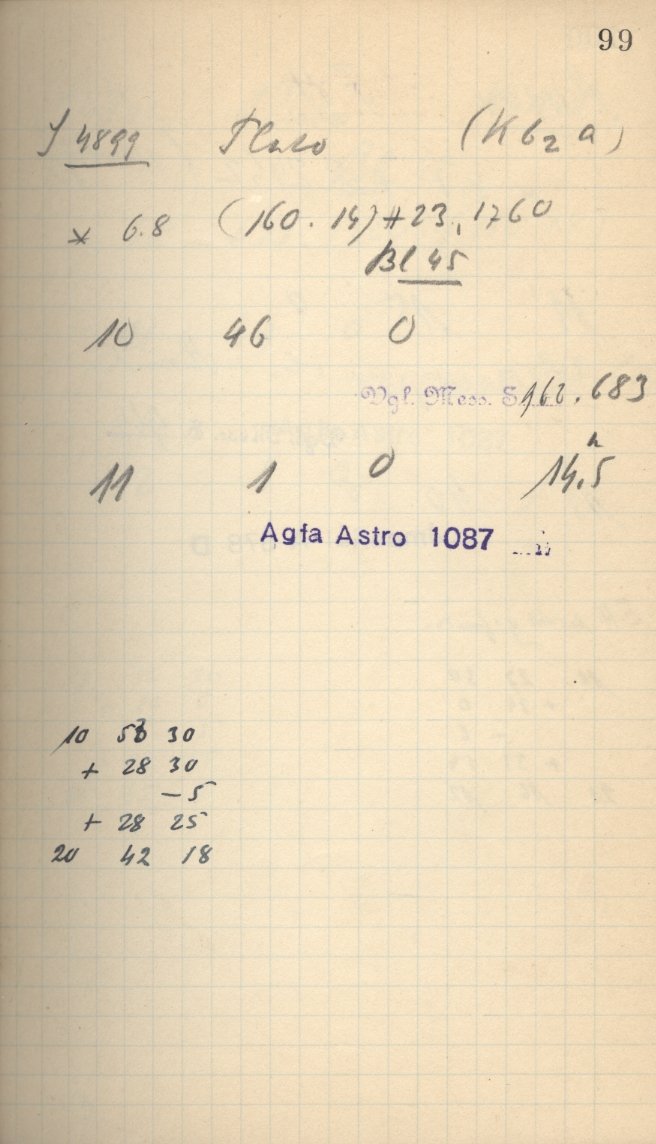 99
J 4899 Pluto (Kb2 a)
* 6.8 (160.14) + 23, 1760
Bl 45
10 46 0
Vgl. Mess. S. 162.683
11 1 0 14.5
Agfa Astro 1087
10 53 30
+ 28 30
- 5
+ 28 25
20 42 18